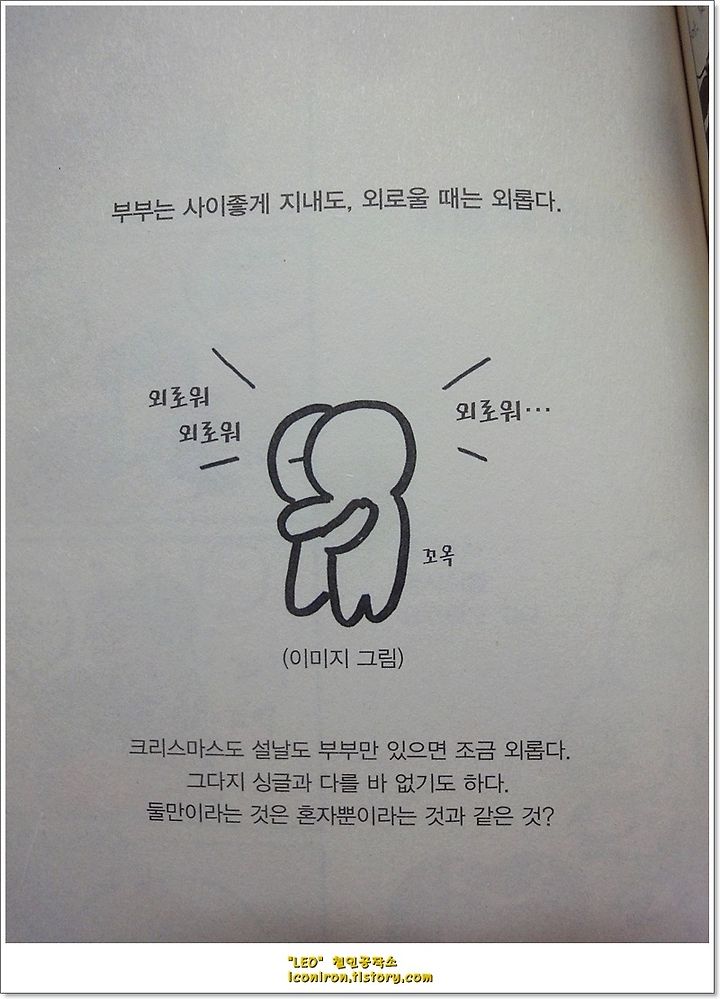 부부는 사이좋게 지내도, 외로울 때는 외롭다.
외로워
외로워
외로워…
꼬옥
(이미지 그림)
크리스마스도 설날도 부부만 있으면 조금 외롭다.
그다지 싱글과 다를 바 없기도 하다.
둘만이라는 것은 혼자뿐이라는 것과 같은 것?
"LEO" 철인공작소
iconiron.tistory.com